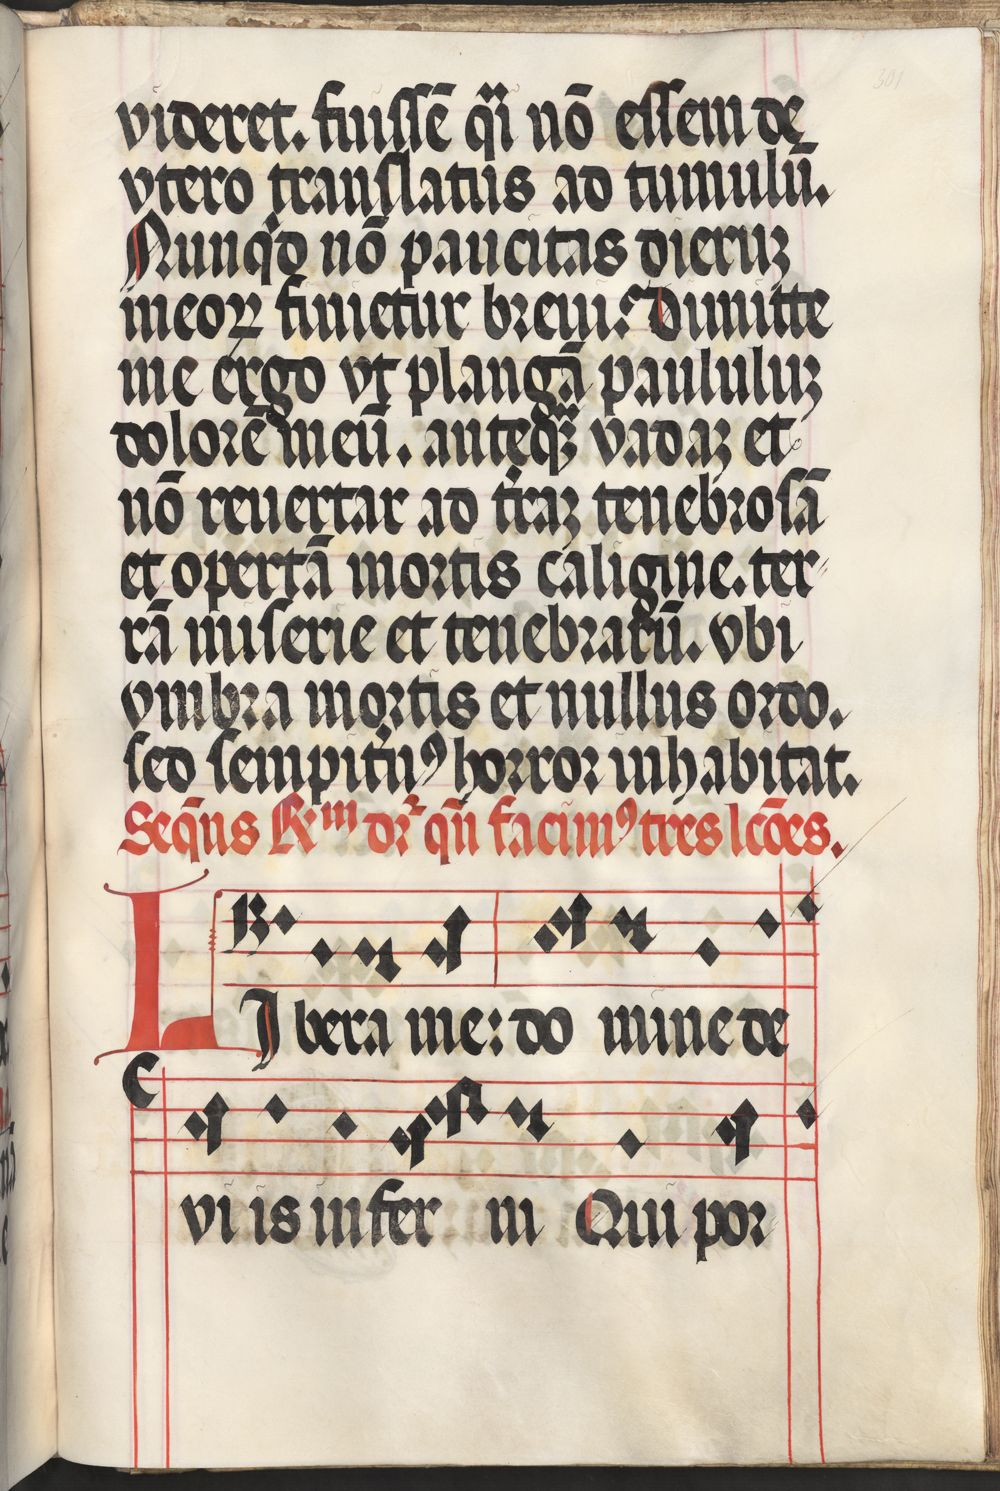 301
videret. fuissē qͣi nō essem de
vtero translatus ad tumulū.
Nunqͥd nō paucitas dieruꝫ
meoꝝ finietur breui? Dimitte
me ergo vt plangā paululuꝫ
dolorē meū. anteqͣꝫ vadaꝫ et
nō reuertar ad t̓raꝫ tenebrosā
et opertā mortis caligine. ter-
rā miserie et tenebrarū. vbi
vmbra mortis et nullus ordo.
sed sempit̓nꝰ horror inhabitat.
Seqͣ̄s Rᵐ dr̄ qn̄ facimꝰ tres lcōes.
LIbera me: do mine de
vi is infer ni Qui por